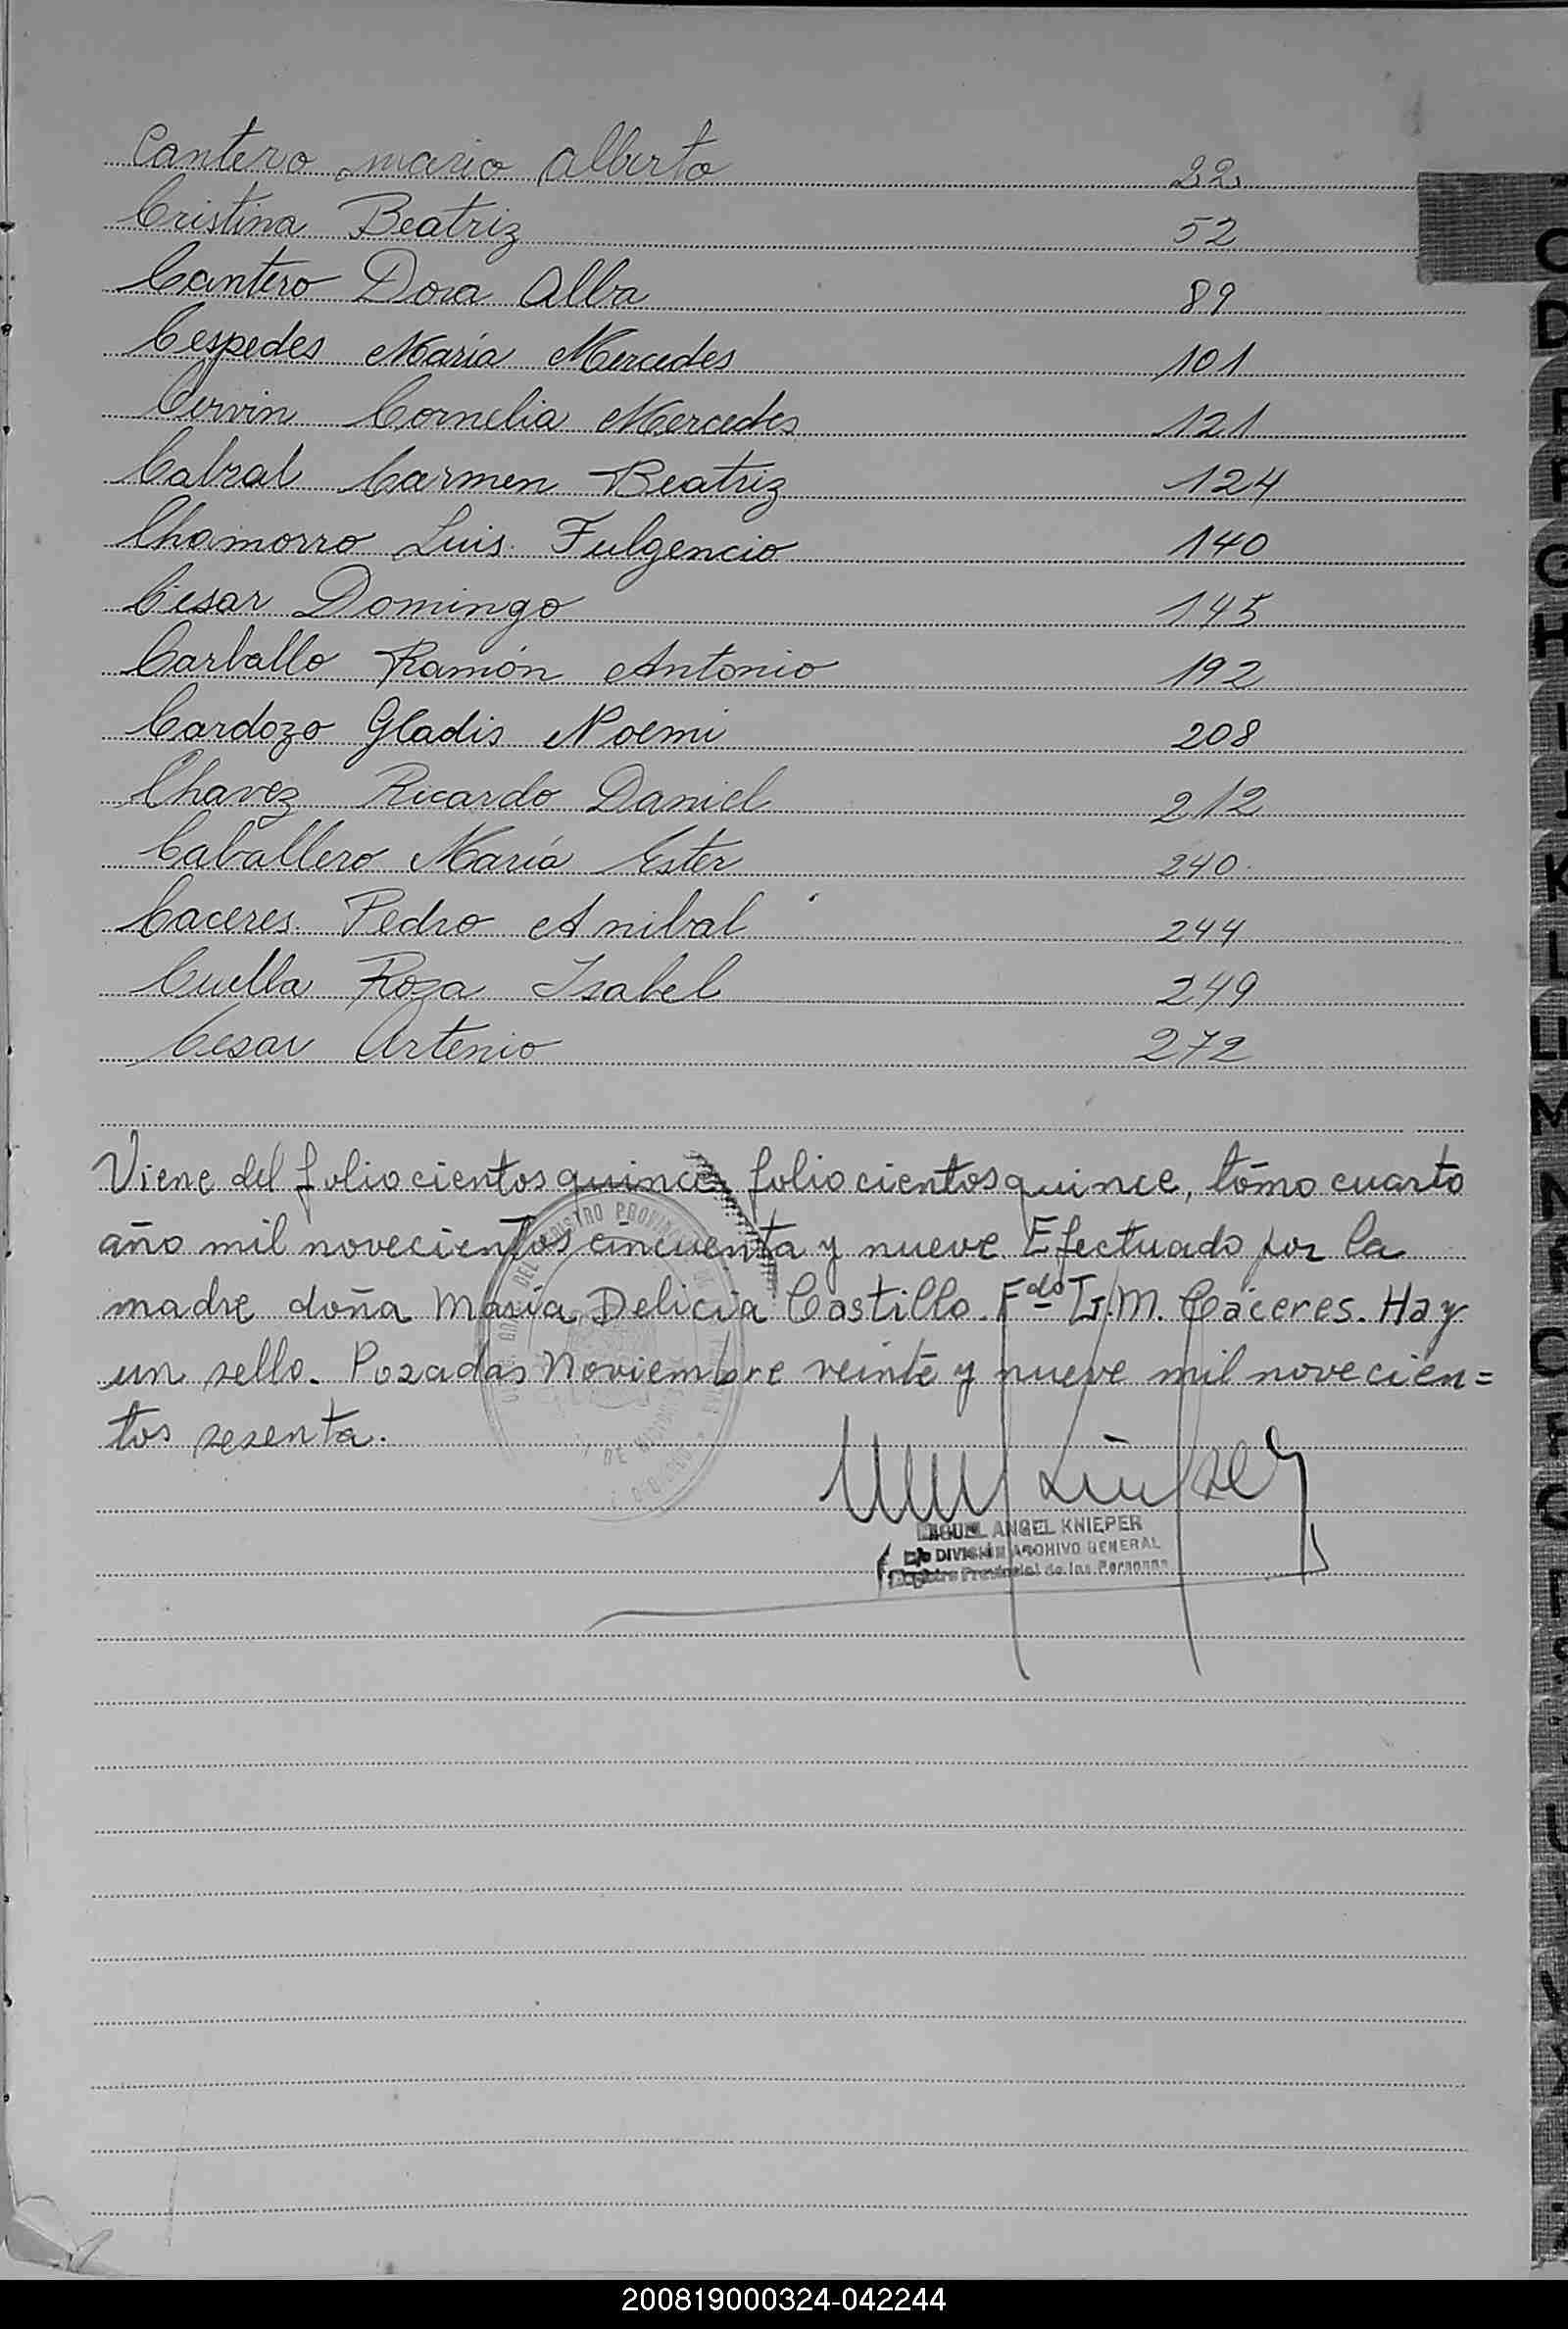 Cantero Mario Alberto 22
Cristina Beatriz 52
Cantero Dora Alba 89
Cespedes María Mercedes 101
Cervin Cornelia Mercedes 121
Cabral Carmen Beatriz 124
Chamorro Luis Fulgencio 140
Cesar Domingo 145
Carballo Ramón Antonio 192
Cardozo Gladis Noemi 208
Chavez Ricardo Daniel 212
Caballero María Ester 240
Caceres Pedro Anibal 244
Cuella Rosa Isabel 249
Cesar Artenio 272
Viene del folio cientos quince folio cientos quince, tómo cuarto
año mil novecientos cincuenta y nueve. Efectuado por la
madre doña María Delicia Castillo. Fdo M. Cáceres. Hay
un sello. Posadas Noviembre veinte y nueve mil novecien=
tos sesenta.
MIGUEL ANGEL KNIEPER
DIVISIÓN ARCHIVO GENERAL
Registro Provincial de las Personas
C
D
F
G
H
I
J
K
L
M
N
O
200819000324-042244